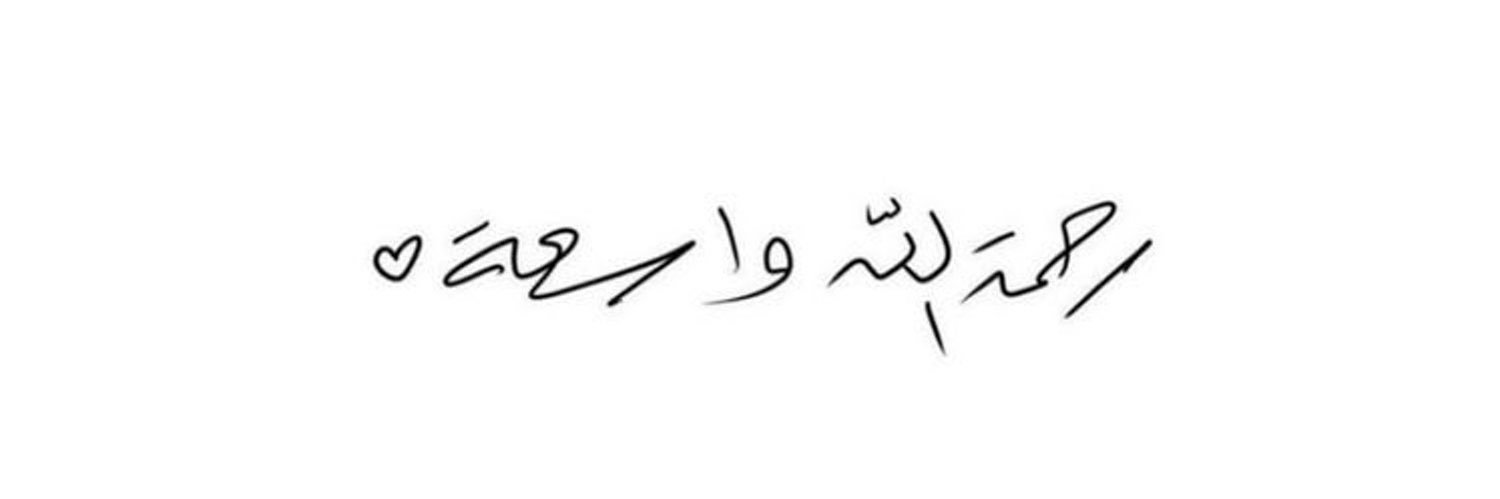 رحمة الله واسعة ♡